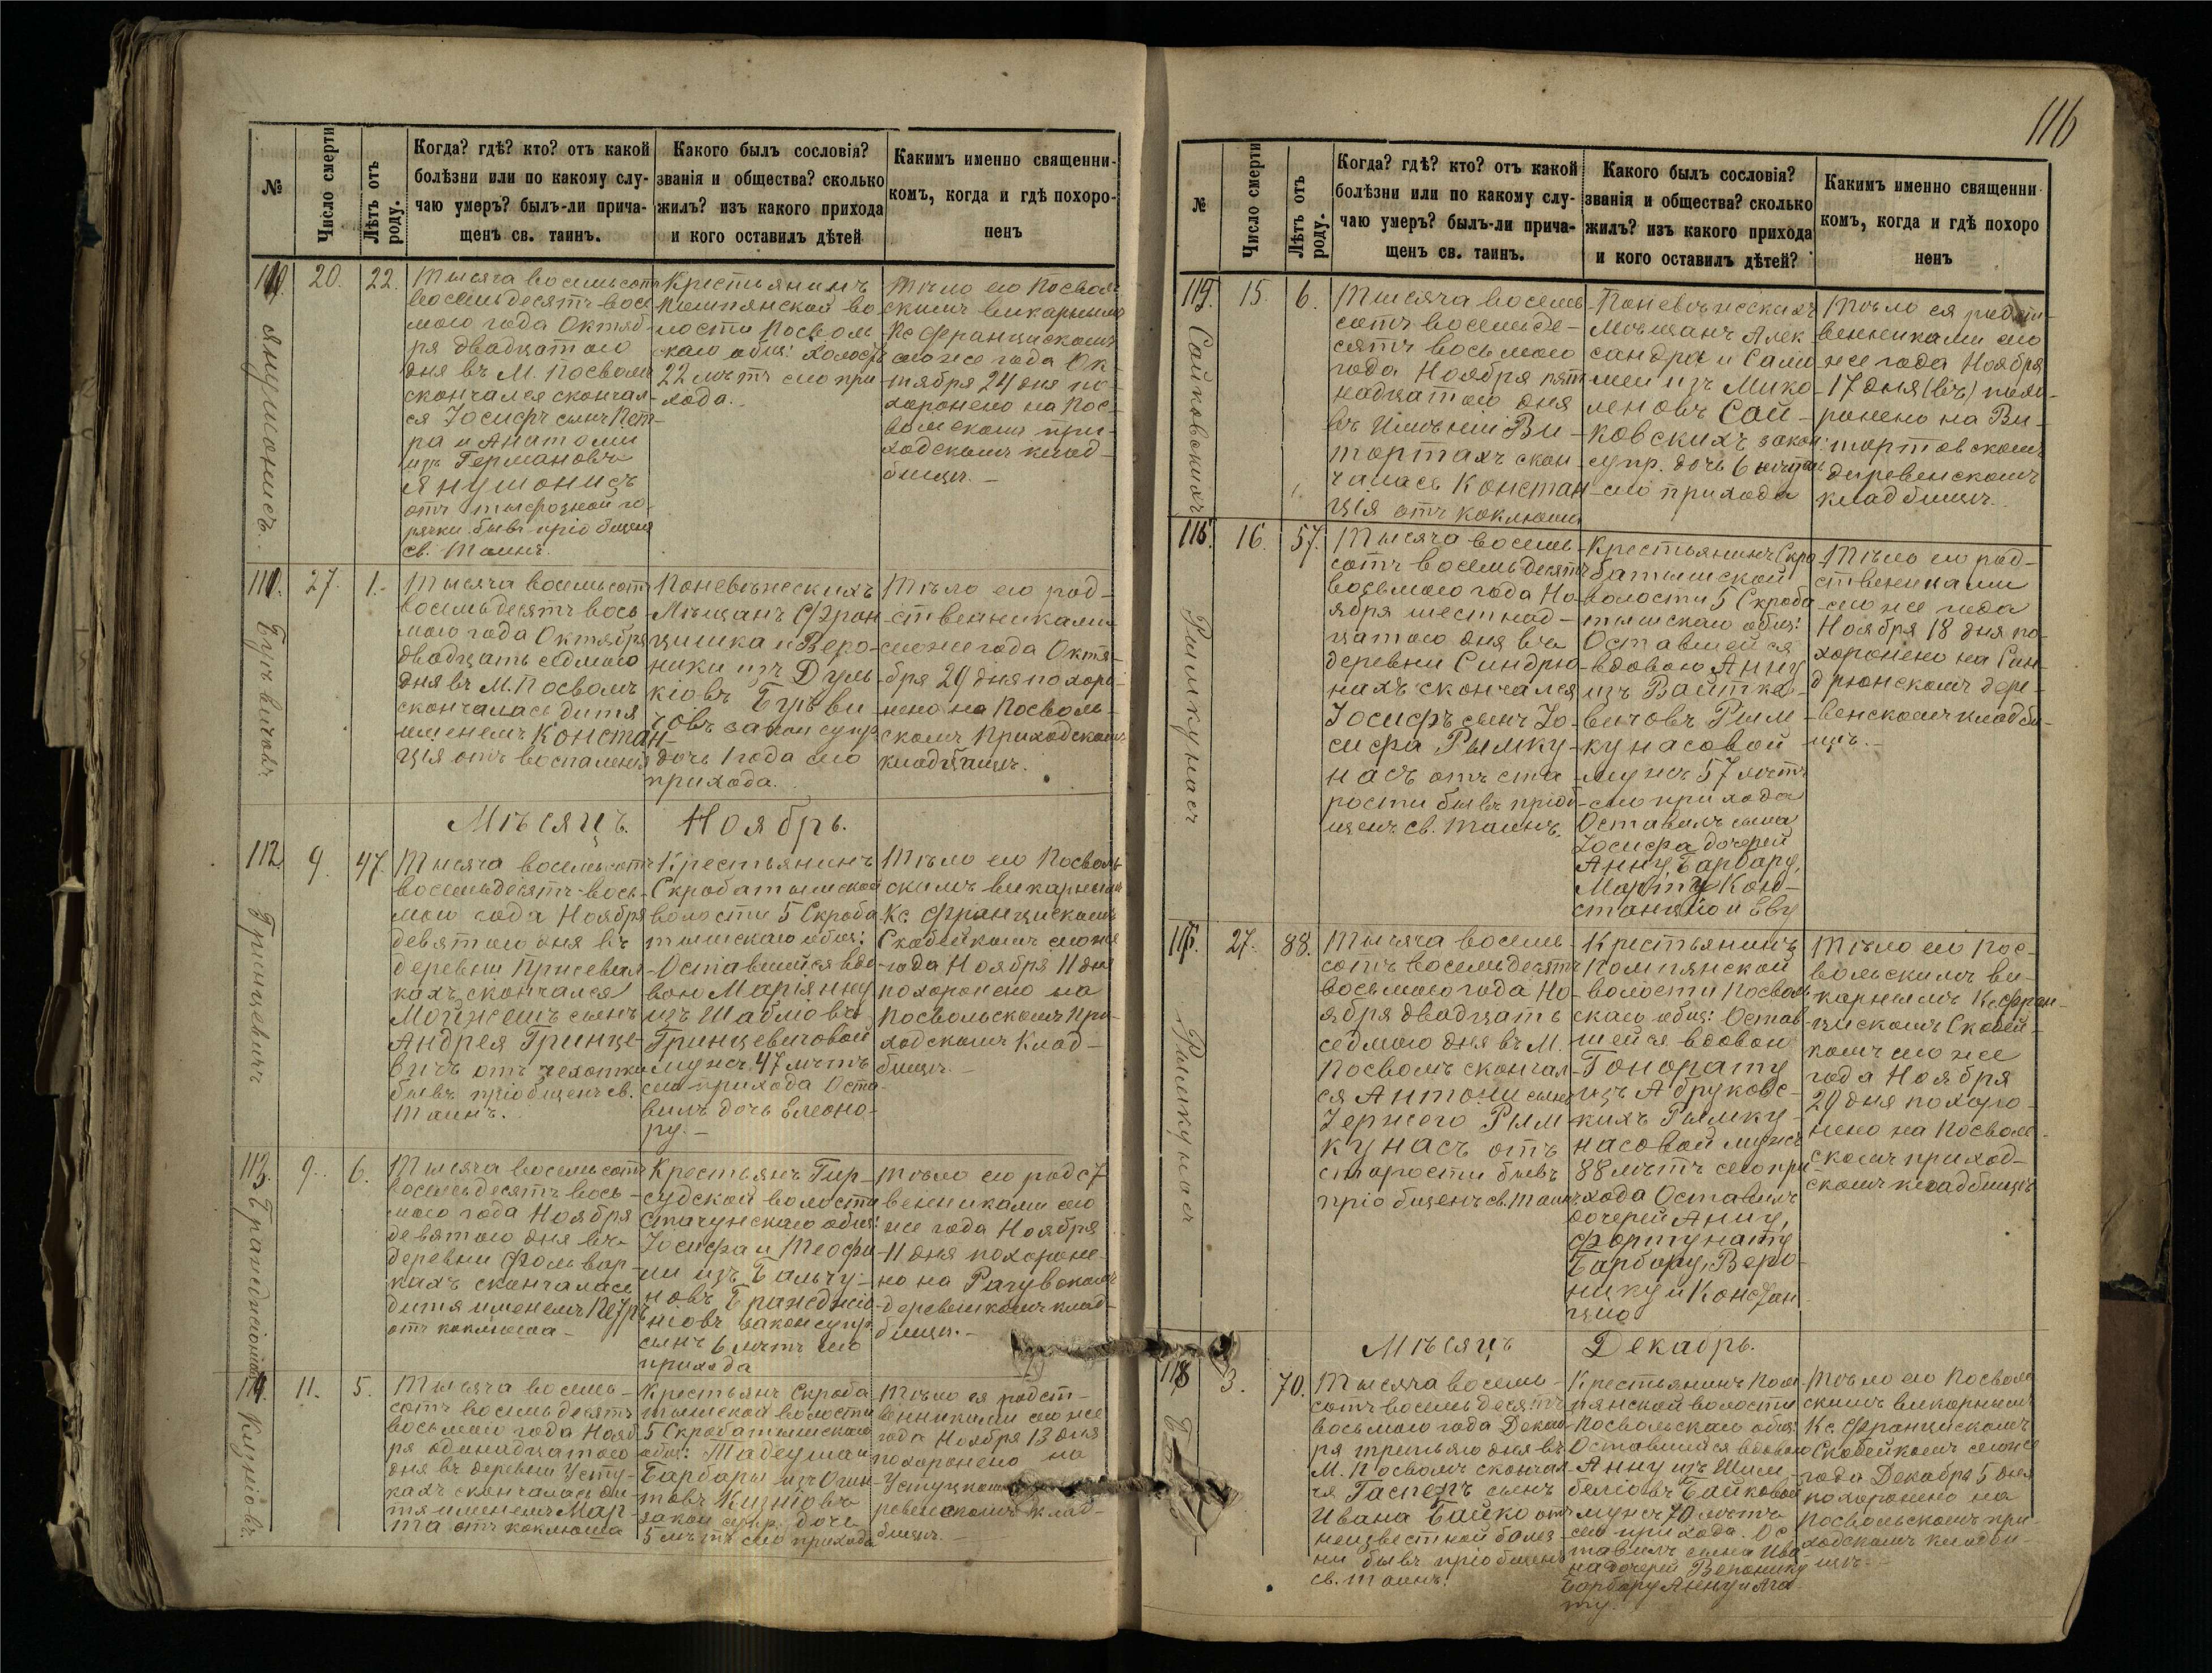 116
№
Число смерти
Лѣтъ отъ роду.
Когда? гдѣ? кто? отъ какой
болѣзни или по какому слу-
чаю умеръ? былъ-ли прича-
щенъ св. таинъ.
Какого былъ сословія?
званія и общества? сколько
жилъ? изъ какого прихода
и кого оставилъ дѣтей
Какимъ именно священни-
комъ, когда и гдѣ похоро-
ненъ
110.
Янушонисъ.
20.
22.
Тысяча восемьсотъ
восемьдесятъ вось
мого года Октяб-
ря двадцатого
дня въ М. Посволѣ
скончался скончал-
ся Іосифъ сынъ Пет-
ра и Анатоліи
изъ Германовъ
Янушонисъ
отъ тыфозной го-
рячки бывъ пріобщенъ
св. Таинъ.
Крестьянинъ
Помпянской во-
лости Посволь
скаго общ: холостъ
22 лѣтъ сего при
хода.
Тѣло его Посволь
скимъ викарнымъ
Кс Францискомъ
сего же года Ок-
тября 24 дня по-
хоронено на Пос-
вольскомъ при-
ходскомъ клад-
бищѣ. —
111.
27.
1.
Тысяча восемьсотъ
восемьдесятъ вось
мого года Октября
двадцать седмого
дня въ М. Посволѣ
скончалась дитя
именемъ Констан
ція отъ воспаленія
Поневѣжескихъ
Мѣщанъ Фран
цишка и Веро-
ники изъ Дуль
кіовъ Буцьви
човъ закон супр
дочь 1 года сего
прихода.
Тѣло его род-
ственниками
сего же года Октя-
бря 29 дня похоро
нено на Посволь-
скомъ Приходскомъ
кладбищѣ.
Мѣсяцъ. Ноябрь.
112
Гринцевичъ
9.
47
Тысяча восемьсотъ
восемьдесятъ вось-
мого года Ноября
девятого дня въ
деревни
кахъ скончался
сынъ
Андрея Гринце-
вичъ отъ чехотки
бывъ пріобщенъ св.
Таинъ.
Крестьянинъ
Скробатышской
волости 5 Скроба
тышскаго общ:
Оставшейся вдо-
вою Маріянну
изъ Шабловъ
Гринцевичовой
мужъ 47 лѣтъ
сего прихода Оста-
вилъ дочь Елеоно-
ру. —
Тѣло его Посволь
скимъ викарнымъ
Кс. Францискомъ
Скабейкомъ сего же
года Ноября 11 дня
похоронено на
Посвольскомъ При-
ходскомъ Клад-
бищѣ. —
113.
9.
6.
Тысяча восемьсотъ
восемьдесятъ вось-
мого года Ноября
девятого дня въ
деревни Фольвар-
кахъ скончалась
дитя именемъ Петръ
отъ коклюша —
Крестьянъ Гир-
судской волости
Стагунскаго общ:
Іосифа и Теофи
ли изъ Бальчу-
новъ Бражджіо
ніовъ закон супр.
сынъ 6 лѣтъ сего
прихода
Тѣло его родст
венниками сего
же года Ноября
11 дня похороне-
но на
деревенскомъ клад-
бищѣ. —
114.
11.
5.
Тысяча восемь-
сотъ восемьдесятъ
восьмого года Нояб-
ря одинадцатого
дня въ деревни Усту-
кахъ скончалась ди-
тя именемъ Мар-
та отъ коклюша
Крестьянъ Скроба
тышской волости
5 Скробатышскаго
общ: Тадеуша и
Барбары изъ Огин-
товъ
закон супр. дочь
5 лѣтъ сего прихода
Тѣло ея родст-
венниками сего же
года Ноября 13 дня
похоронено на
Устуцкомъ де-
ревенскомъ клад-
бищѣ. —
№
Число смерти
Лѣтъ отъ роду.
Когда? гдѣ? кто? отъ какой
болѣзни или по какому слу-
чаю умеръ? былъ-ли прича-
щенъ св. таинъ.
Какого былъ сословія?
званія и общества? сколько
жилъ? изъ какого прихода
и кого оставилъ дѣтей?
Какимъ именно священни-
комъ, когда и гдѣ похоро
ненъ
115.
Сайковскихъ
15
6.
Тысяча восемь-
сотъ восемьде-
сятъ восьмого
года Ноября пят
надцатого дня
въ Имѣніи Ви-
тортахъ скон-
чалась Констан
ція отъ коклюша
Поневѣжескихъ
Мѣщанъ Алек
сандра и Сало
меи изъ Мико-
леновъ Сай-
ковскихъ закон:
супр. дочь 6 лѣтъ
сего прихода
Тѣло ея родст-
венниками сего
же года Ноября
17 дня (въ) похо-
ронено на Ви-
тортовскомъ
деревенскомъ
кладбищѣ.
116.
Рымкунасъ
16.
57.
Тысяча восемь-
сотъ восемьдесятъ
восьмого года Но-
ября шестнад-
цатого дня въ
деревни Синдрю-
нахъ скончался
Іосифъ сынъ Іо-
сифа Рымку-
насъ отъ ста-
рости бывъ пріоб-
щенъ св. таинъ.
Крестьянинъ Скро
батышской
волости 5 Скроба-
тышскаго общ:
Оставшейся
вдовою Анну
изъ Вайтке-
вичовъ Рым-
кунасовой
мужъ 57 лѣтъ
сего прихода
Оставилъ сына
Іосифа дочерей
Анну, Барбару,
Марту Кон-
станцію и Еву
Тѣло его род-
ственниками
сего же года
Ноября 18 дня по-
хоронено на Син-
дрюнскомъ дере-
венскомъ кладби-
щѣ. —
117.
Рымкунасъ
27.
88.
Тысяча восемь-
сотъ восемьдесятъ
восьмого года Но-
ября двадцать
седмого дня въ М.
Посволѣ скончал-
ся Антони сынъ
Іержего Рым-
кунасъ отъ
старости бывъ
пріобщенъ св. Таинъ
Крестьянинъ
Помпянской
волости Посволь
скаго общ: Остав-
шейся вдовою
Гонорату
изъ Абруковс-
кихъ Рымку
насовой мужъ
88 лѣтъ сего при-
хода Оставилъ
дочерей Анну,
Фортунату
Барбару, Веро-
нику и Констан
цію
Тѣло его Пос-
вольскимъ ви-
карнымъ Кс Фран-
цискомъ Скобей-
комъ сего же
года Ноября
29 дня похоро-
нено на Посволь-
скомъ приход-
скомъ кладбищѣ
Мѣсяцъ Декабрь.
118
3.
70.
Тысяча восемь-
сотъ восемьдесятъ
восьмого года Декаб-
ря третьяго дня въ
М. Посволѣ скончал-
ся Гасперъ сынъ
Ивана Байко отъ
неизвестной болез
ни бывъ пріобщенъ
св. Таинъ.
Крестьянинъ Пом-
пянской волости
Посвольскаго общ:
Оставшейся вдовою
Анну изъ Шим-
беловъ Байковой
мужъ 70 лѣтъ
сего прихода. Ос-
тавилъ сына Ива
на дочерей Веронику
Барбару Анну и Ага
ту.
Тѣло его Посволь
скимъ викарнымъ
Кс. Францискомъ
Скобейкомъ сего же
года Декабря 5 дня
похоронено на
Посвольскомъ при-
ходскомъ кладби-
щѣ. —